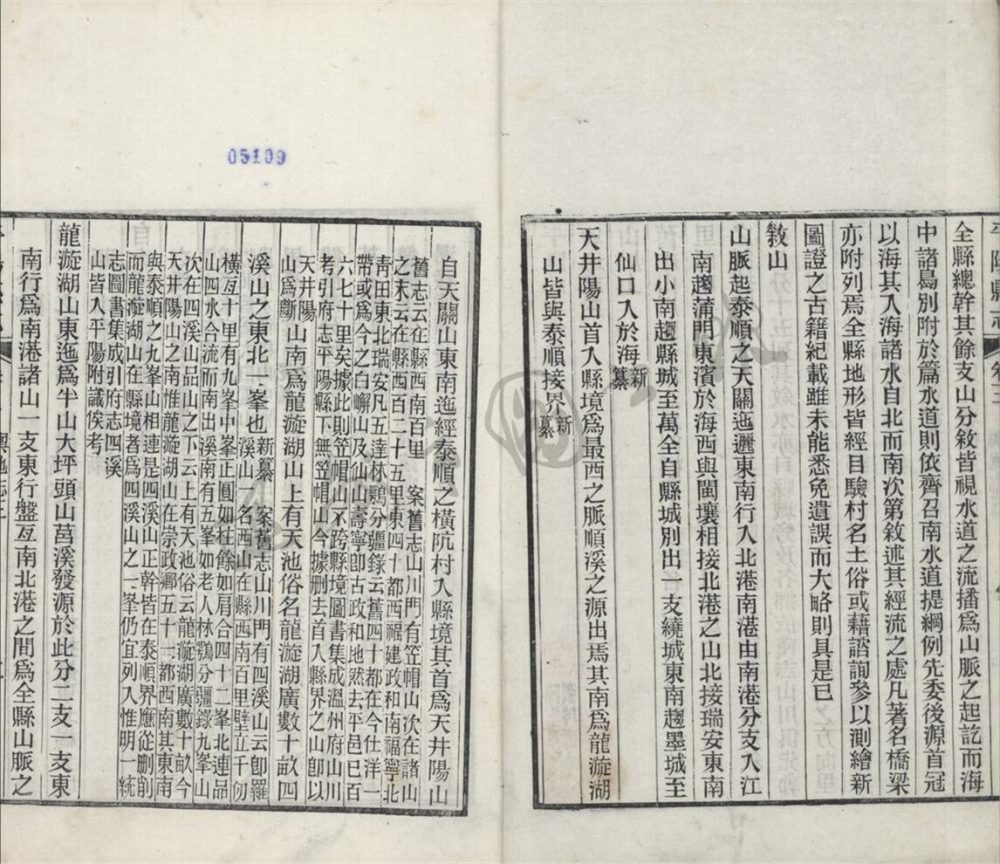 全縣總幹其餘支山分敘皆視水道之流播爲山脈之起訖而海
中諸島別附於篇水道則依齊召南水道提綱例先委後源首冠
以海其入海諸水自北而南次第敘述其經流之處凡著名橋梁
亦附列焉全縣地形皆經目驗村名土俗或藉諮詢參以測繪新
圖證之古籍紀載雖未能悉免遺誤而大略則具是已
敘山
山脈起泰順之天關迤邐東南行入北港南港由南港分支入江
南趨蒲門東濱於海西與閩壤相接北港之山北接瑞安東南
出小南趨縣城至萬全自縣城別出一支繞城東南趨墨城至
仙口入於海新纂
天井陽山首入縣境爲最西之脈順溪之源出焉其南爲龍漩湖
山皆與泰順接界新纂
自天關山東南迤經泰順之橫阬村入縣境其首爲天井陽山
舊志云在縣西南百里 案舊志山川門有笠帽山次在諸山
之末云在縣西百二十五里東四十都西福建政和南福寧北
青田東北瑞安凡五達林鶚分疆錄云舊四十都在今仕洋一
帶或爲今之白獬山及仙山壽寧卽古政和地然去平邑已百
六七十里矣據此則笠帽山不跨縣境圖書集成溫州府山川
考引府志平陽縣下無笠帽山今據刪去首入縣界之山卽以
天井陽山爲斷
山南爲龍漩湖山上有天池俗名龍漩湖廣數十畝四
溪山之東北一峯也新纂 案舊志山川門有四溪山云卽羅
溪山一名西山在縣西南百里壁立千仞
橫亙十里有九峯中峯正圓如柱餘如肩合四十二峯北連品
山四水合流而南出溪南有五峯如老人林鶚分疆錄九峯山
次在四溪品山之下云上有天池俗云龍漩湖廣數十畝今
天井陽山之南惟龍漩湖山在崇政鄉五十三都西南其東南
與泰順之九峯山相連是四溪山正幹皆在泰順界應從刪削
而龍漩湖山在縣境者爲四溪山之一峯仍宜列入惟明一統
志圖書集成引府志四溪
山皆入平陽附識俟考
龍漩湖山東迤爲半山大坪頭山莒溪發源於此分二支一支東
南行爲南港諸山一支東行盤亙南北港之間爲全縣山脈之
05109